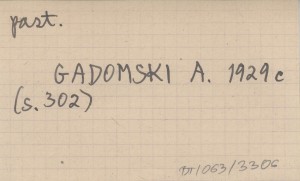 past.
GADOMSKI A. 1929c
(s. 302)
/063/3306